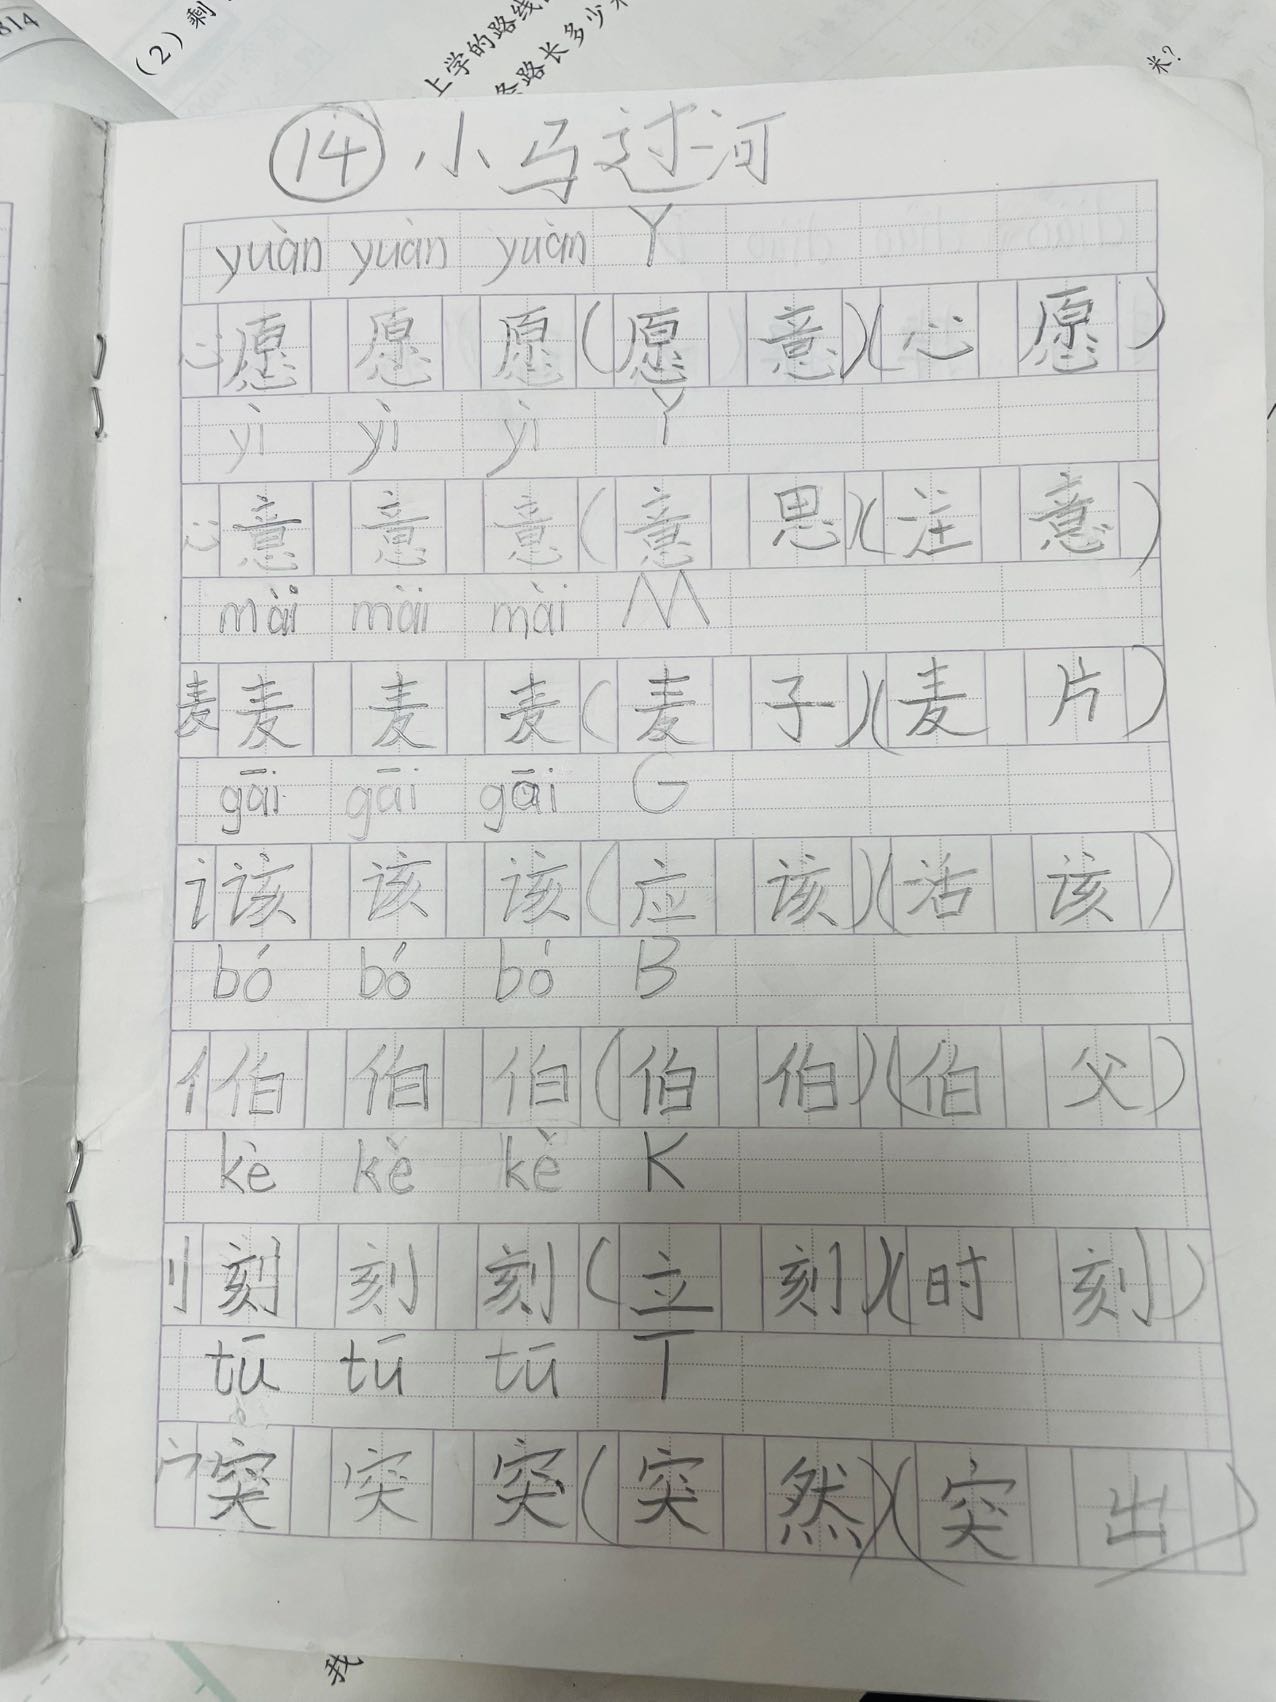 814
(2)剩
上学的路线
条路长多少米
米?
14 小马过河
yuàn yuàn yuàn Y
心 愿 愿 愿 (愿意)(心愿)
yì yì yì Y
心 意 意 意 (意思)(注意)
mài mài mài M
麦 麦 麦 麦 (麦子)(麦片)
gāi gāi gāi G
讠 该 该 该 (应该)(活该)
bó bó bó B
亻 伯 伯 伯 (伯伯)(伯父)
kè kè kè K
刂 刻 刻 刻 (立刻)(时刻)
tū tū tū T
宀 突 突 突 (突然)(突出)
我